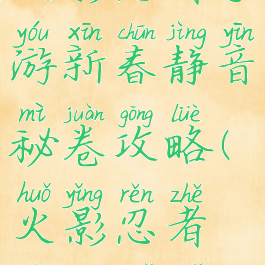 yóu xīn chūn jìng yīn
游新春静音
mì juàn gōng lüè
秘卷攻略(
huǒ yǐng rěn zhě
火影忍者